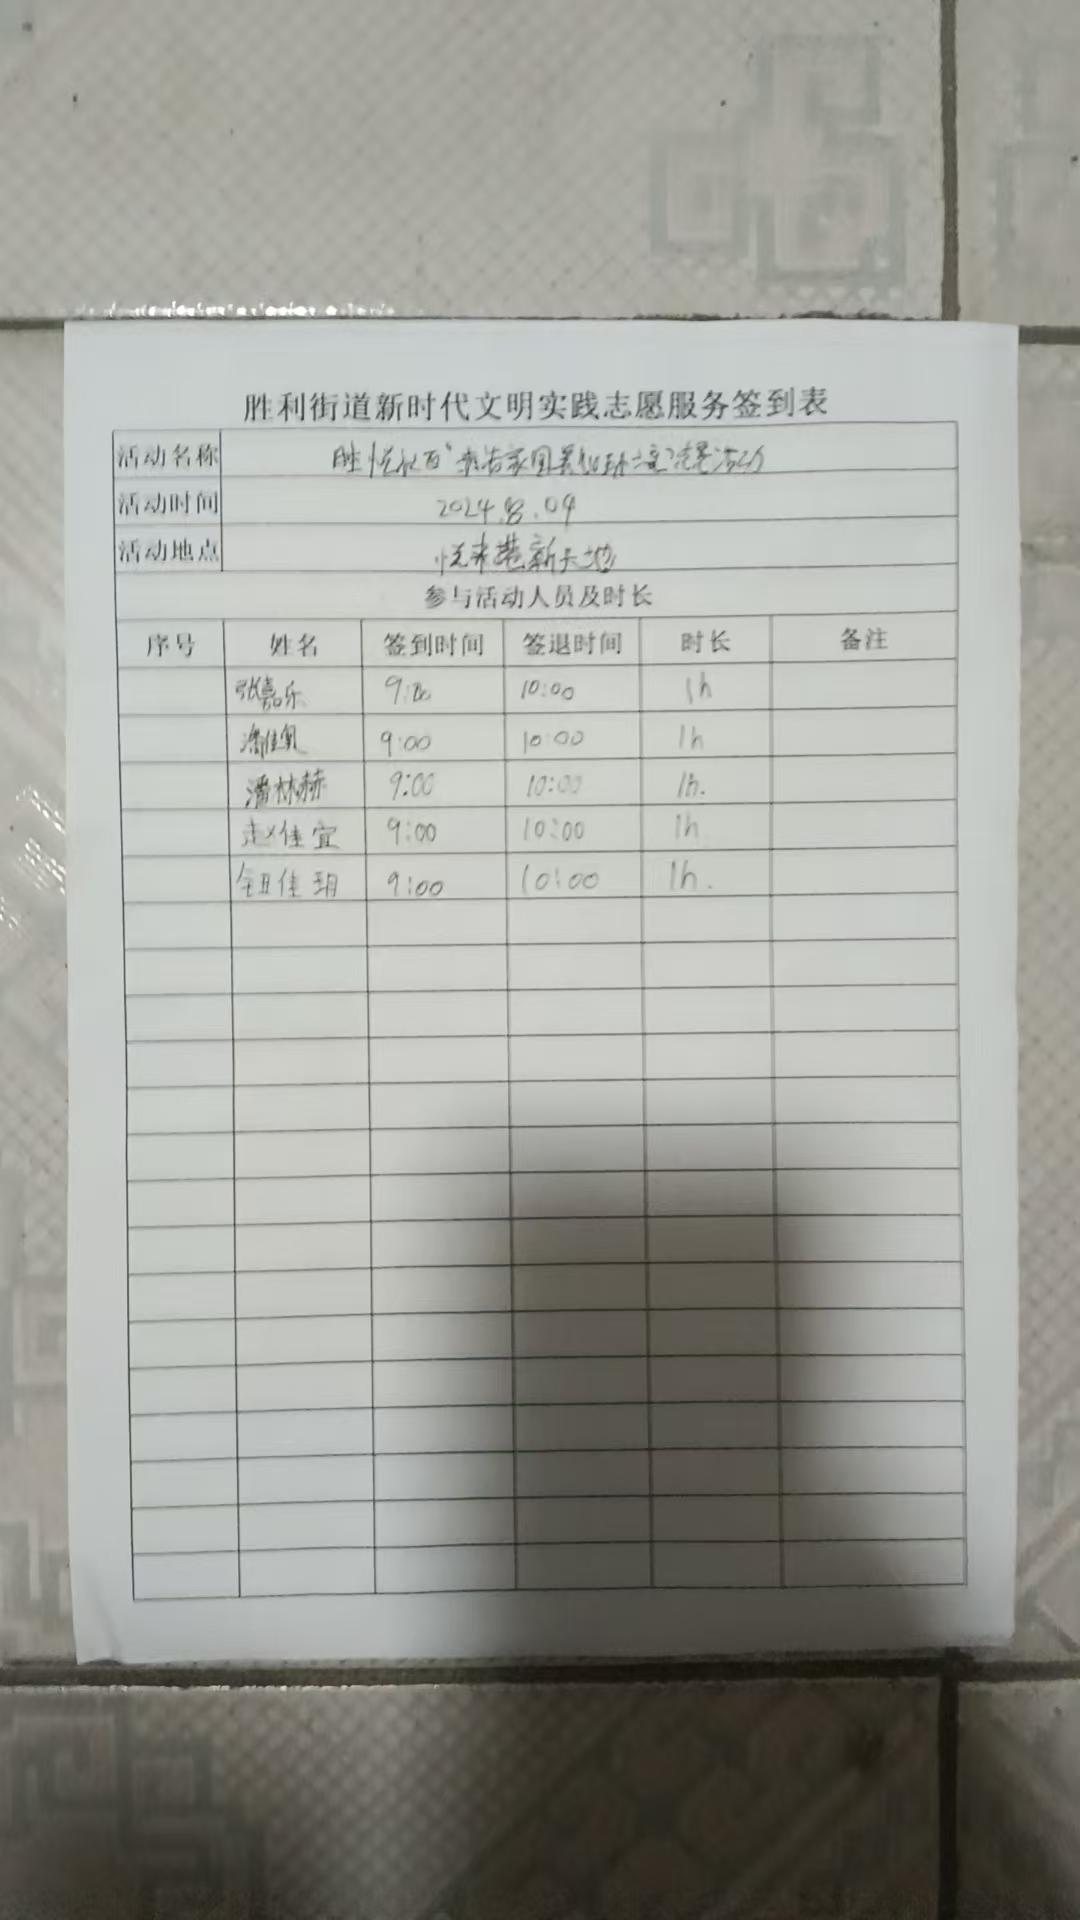 胜利街道新时代文明实践志愿服务签到表
活动名称 胜悦社区
活动时间 2024.8.09
活动地点 悦来港新天地
参与活动人员及时长
序号 姓名 签到时间 签退时间 时长 备注
张嘉乐 10:00 1h
9:00 10:00 1h
潘林赫 9:00 10:00 1h.
赵佳宜 9:00 10:00 1h
钮佳玥 9:00 10:00 1h.